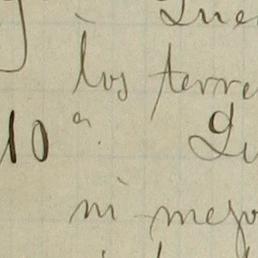 Que
los terre
10ª Qu
ni mejo